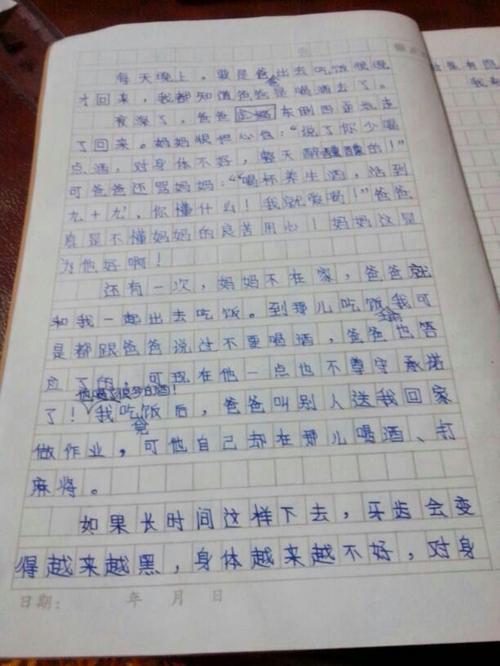 每天晚上，要是爸爸出去吃饭很晚
才回来，我都知道爸爸是喝酒去了。
夜深了，爸爸东倒西歪地走
了回来。妈妈很担心他："说了你少喝
点酒，对身体不好，整天醉醺醺的！"
可爸爸还骂妈妈："喝杯养生酒，活到
九十九，你懂什么！我就爱喝！"爸爸
真是不懂妈妈的良苦用心！妈妈这是
为他好啊！
还有一次，妈妈不在家，爸爸就
和我一起出去吃饭。到那儿吃饭我可
是都跟爸爸说过不要喝酒，爸爸也答
应了的，可现在他一点也不尊守承诺
他喝了很多白酒！
了！我吃完饭后，爸爸叫别人送我回家
做作业，可他自己却在那儿喝酒、打
麻将。
如果长时间这样下去，牙齿会变
得越来越黑，身体越来越不好，对身
日期： 年 月 日